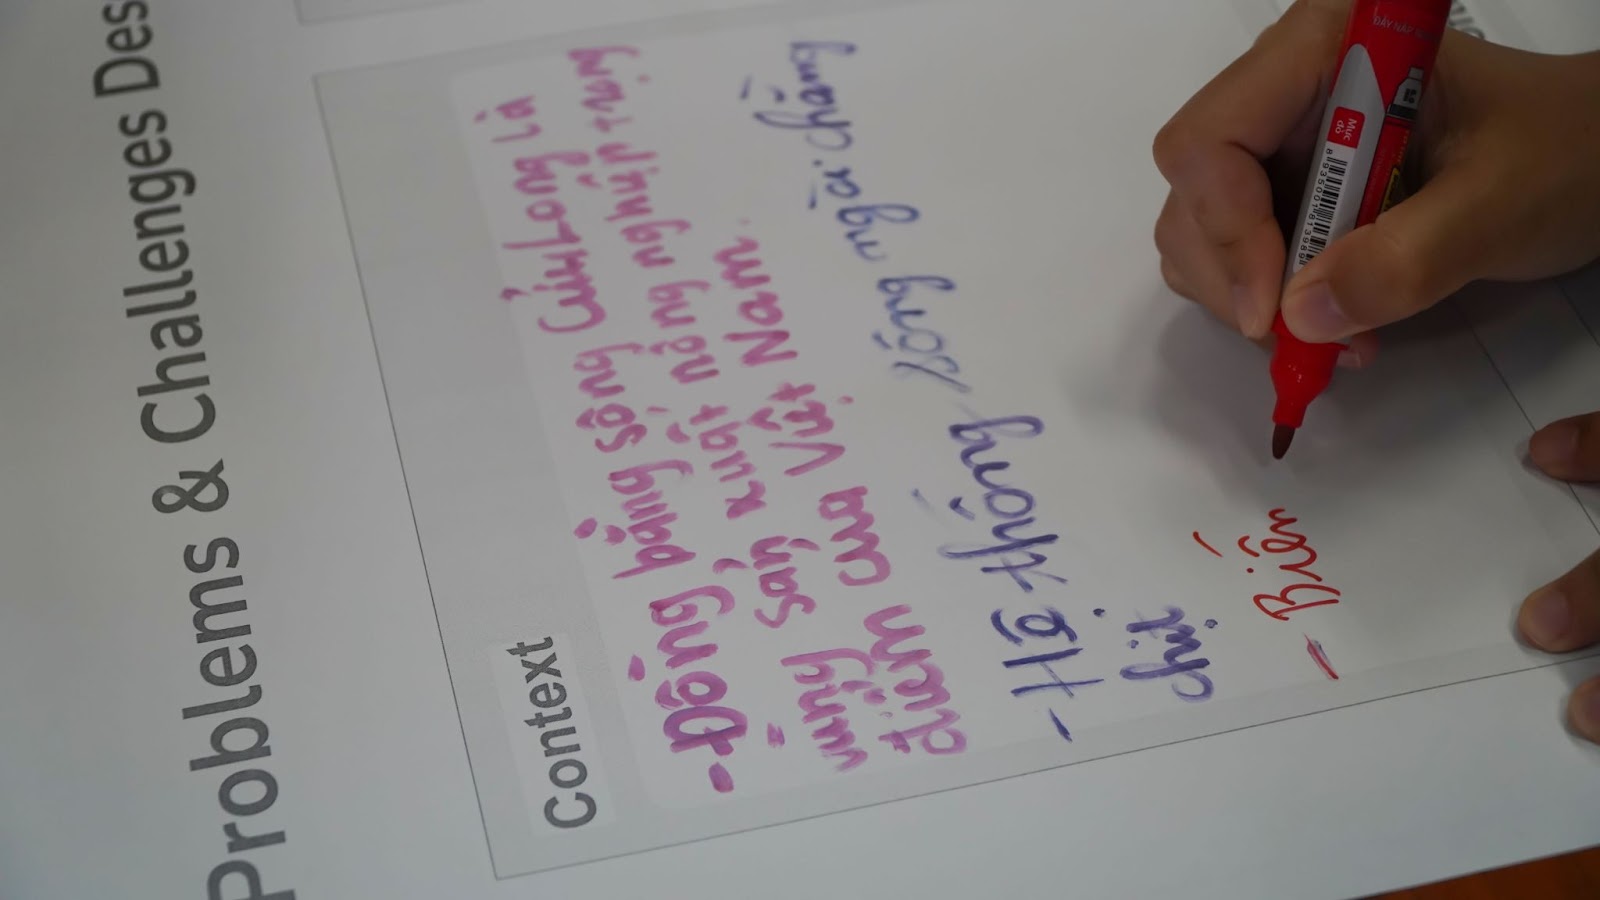 Problems & Challenges Des
Context
- Đồng bằng sông Cửu Long là
vùng sản xuất nông nghiệp trọng
điểm của Việt Nam.
- Hệ thống sông ngòi chằng
chịt
- Biến
ĐẬY NẮP
Mực đỏ